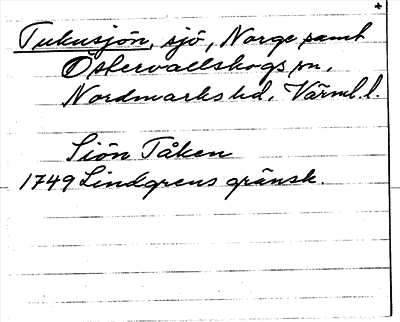 Tukusjön, sjö, Norge samt
Östervallskogs sn,
Nordmarks hd, Värml. l.
Siön Tåken
1749 Lindgrens gränsk.